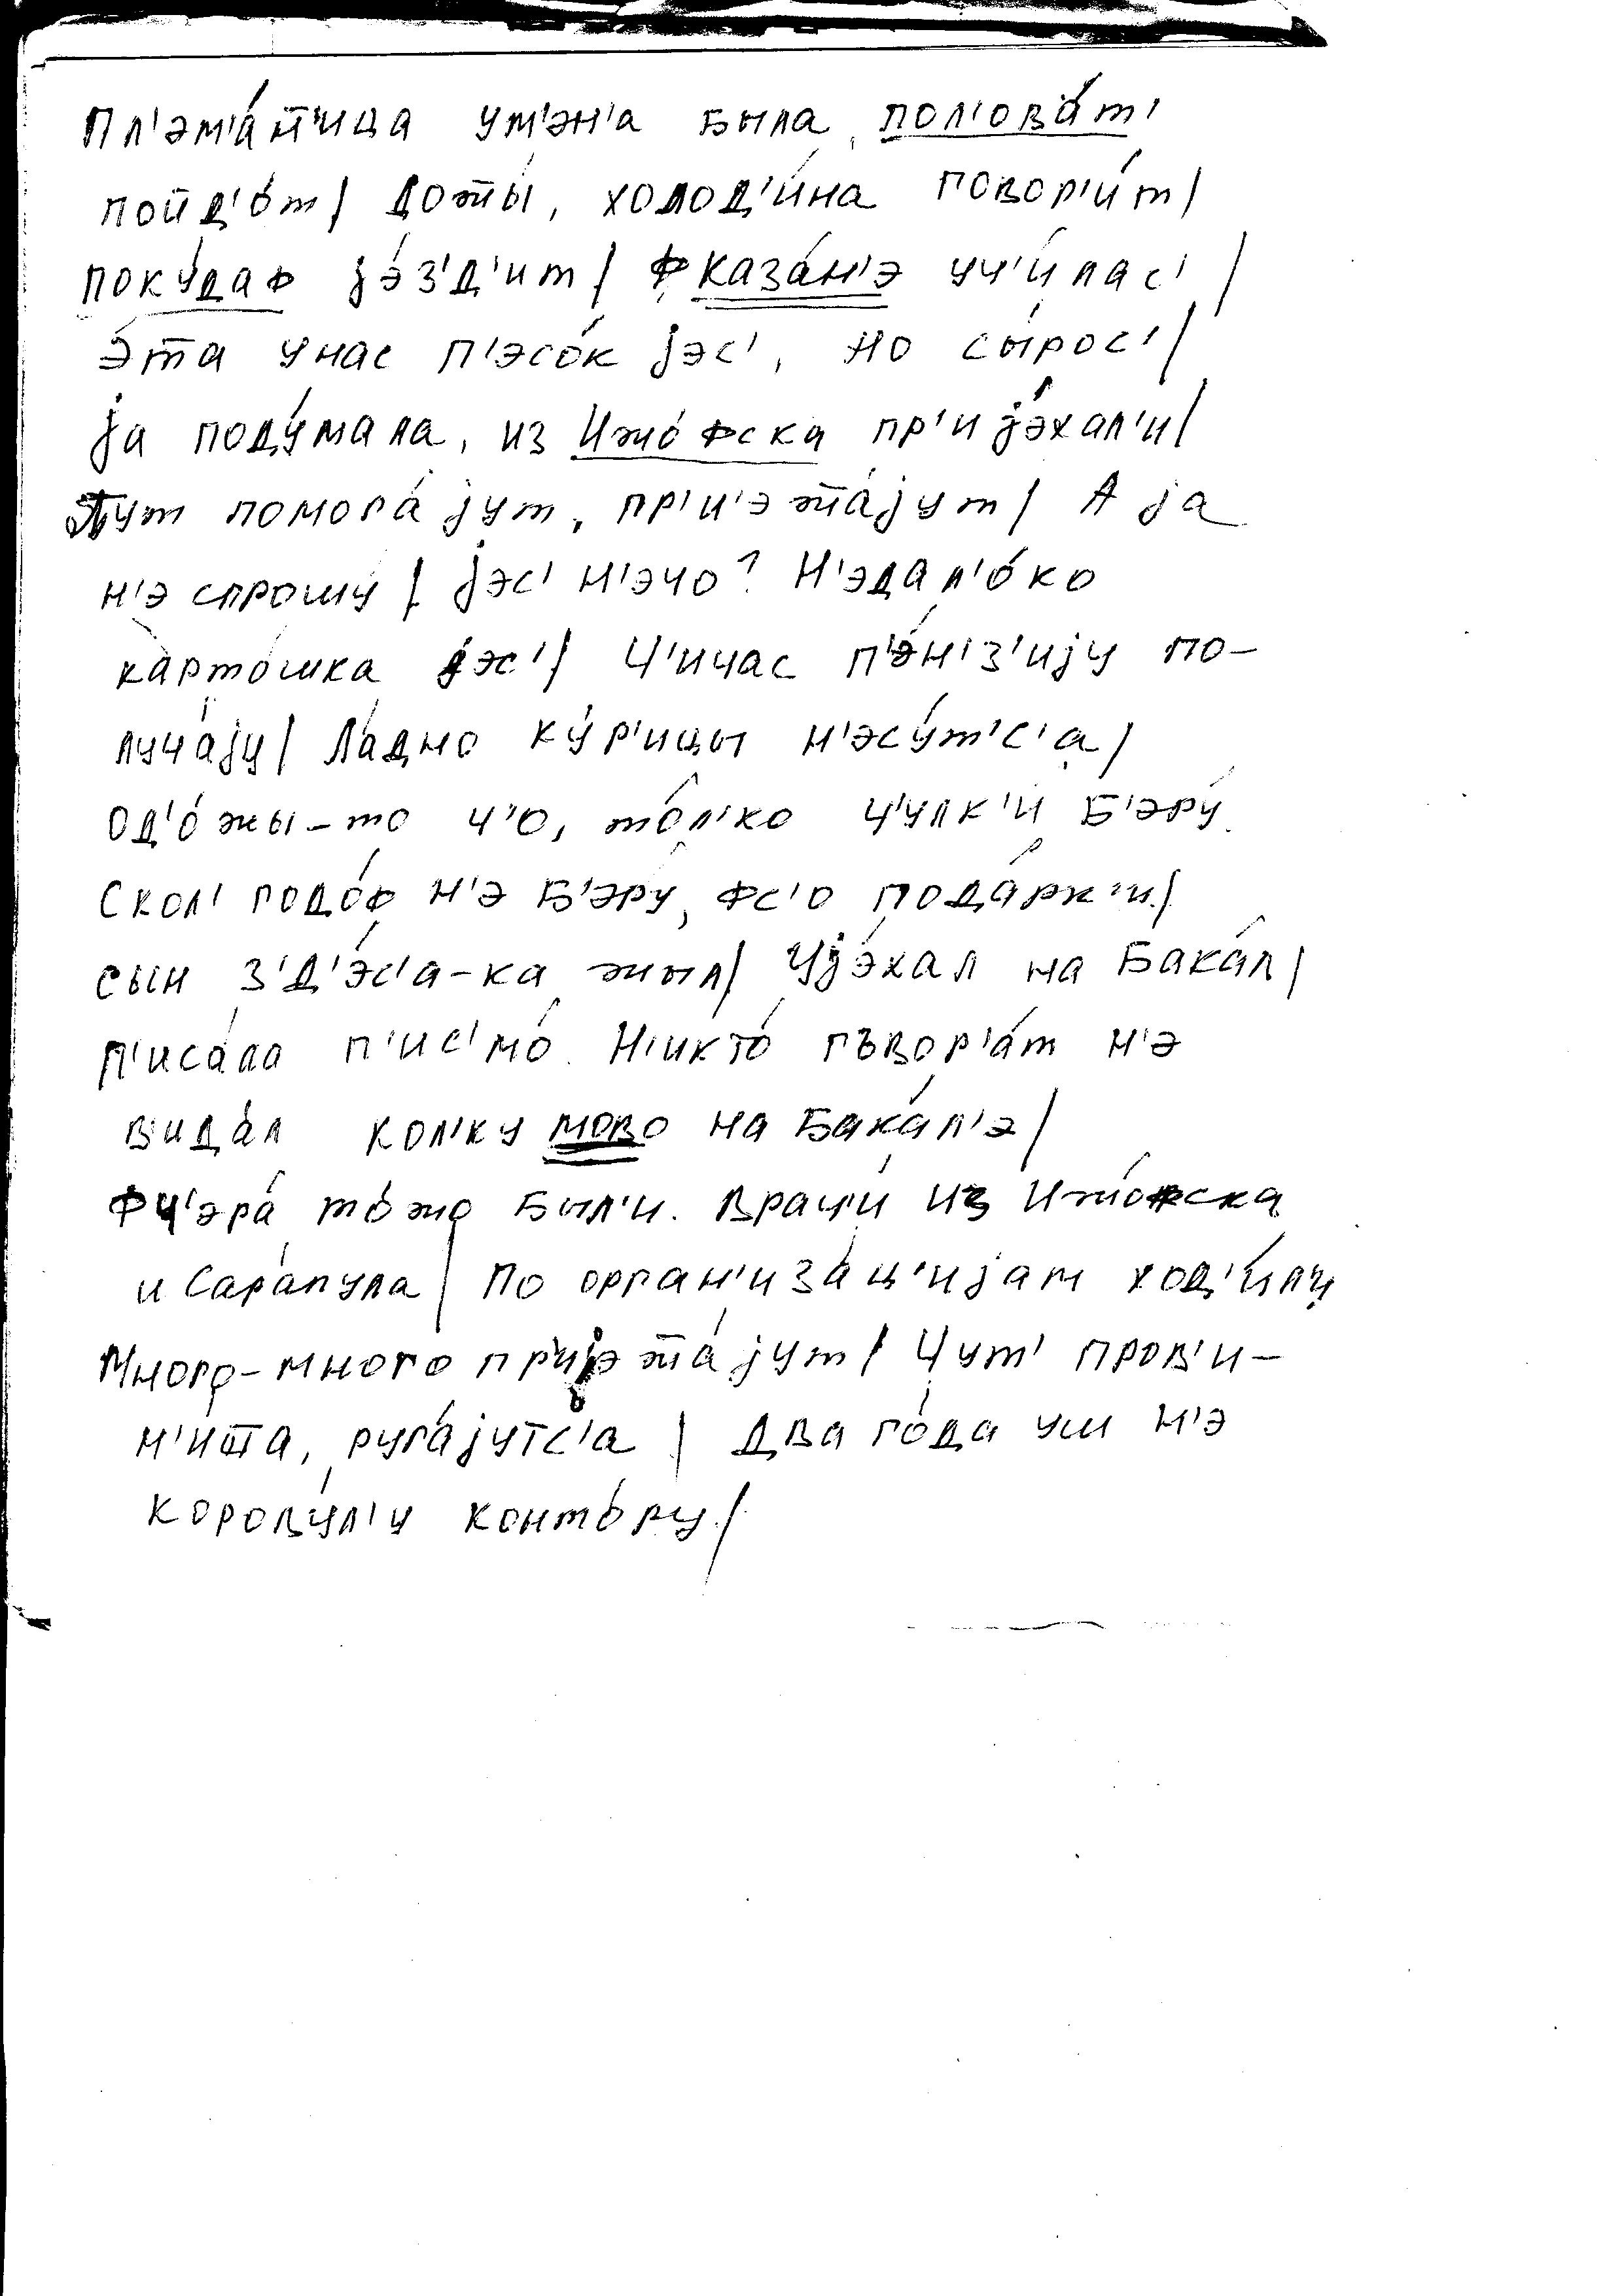 Пл'эм'а́н̄'ица ум'эн'а была, пол'ова́т'
пойд'о́т/ Дож̄ы́, холод'и́на говор'и́т/
поку́даф jэ́з'д'ит/ Ф каза́н'э уч'и́лас'/
Э́та у нас п'эсо́к jэс', но сы́рос'/
ja поду́мала, из Ижо́фска пр'иjэ́хал'и/
Тут помога́jут, пр'ийэж̄а́jут/ А ja
н'э спрошу/ jэс' н'эчо? Н'эдал'о́ко
карто́шка jэс'/ Ч'ичас п'э́н'з'иjу по-
луча́jу/ Ла́дно ку́р'ицы н'эсу́т'с'а/
Од'о́жы-то ч'о, то́л'ко ч'улк'и́ б'эру́.
Скол' годо́ф н'э б'эру, фс'о пода́рк'и/
сын з'д'э́с'а-ка жыл/ Уjэ́хал на Бака́л/
п'иса́ла п'ис'мо́. Н'икто́ гъвор'а́т н'э
вида́л кол'ку мово на Бака́л'э/
Фч'эра́ то́жо был'и. Врач'и́ из Ижо́фска
и Сара́пула/ По орган'иза́ц'иjам ход'и́ли
Много-много пр'иjэж̄а́jут/ Чут' пров'и-
н'иш̄а, руга́jутс'а/ Два го́да уш н'э
корову́л'у конто́ру/